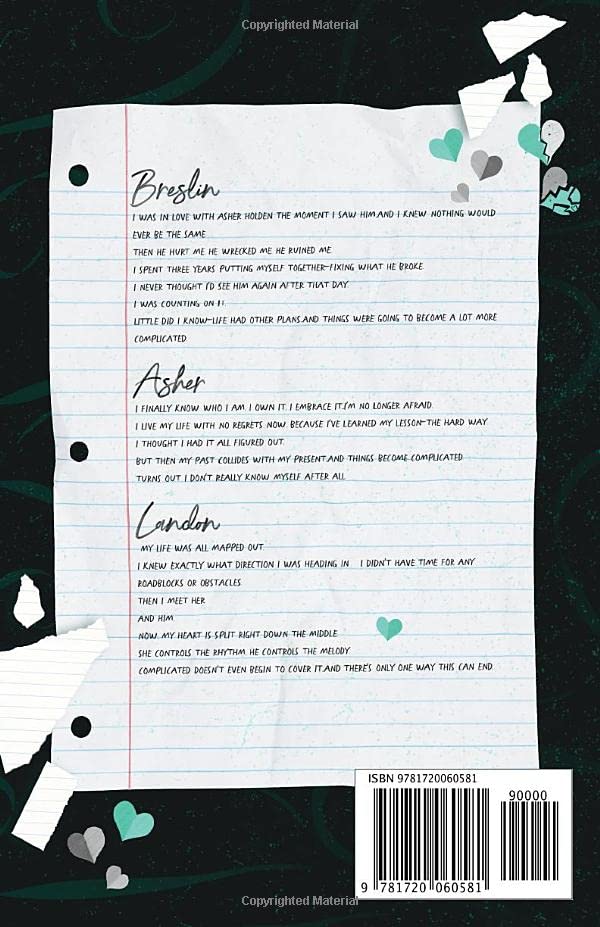 Copyrighted Material
Breslin
I WAS IN LOVE WITH ASHER HOLDEN THE MOMENT I SAW HIM.AND I KNEW NOTHING WOULD
EVER BE THE SAME.
THEN HE HURT ME. HE WRECKED ME. HE RUINED ME.
I SPENT THREE YEARS PUTTING MYSELF TOGETHER-FIXING WHAT HE BROKE.
I NEVER THOUGHT I'D SEE HIM AGAIN AFTER THAT DAY.
I WAS COUNTING ON IT.
LITTLE DID I KNOW-LIFE HAD OTHER PLANS.AND THINGS WERE GOING TO BECOME A LOT MORE
COMPLICATED.
Asher
I FINALLY KNOW WHO I AM. I OWN IT. I EMBRACE IT.I'M NO LONGER AFRAID.
I LIVE MY LIFE WITH NO REGRETS NOW. BECAUSE I'VE LEARNED MY LESSON-THE HARD WAY.
I THOUGHT I HAD IT ALL FIGURED OUT.
BUT THEN MY PAST COLLIDES WITH MY PRESENT.AND THINGS BECOME COMPLICATED.
TURNS OUT I DON'T REALLY KNOW MYSELF AFTER ALL.
Landon
MY LIFE WAS ALL MAPPED OUT.
I KNEW EXACTLY WHAT DIRECTION I WAS HEADING IN. I DIDN'T HAVE TIME FOR ANY
ROADBLOCKS OR OBSTACLES.
THEN I MEET HER.
AND HIM.
NOW MY HEART IS SPLIT RIGHT DOWN THE MIDDLE.
SHE CONTROLS THE RHYTHM. HE CONTROLS THE MELODY.
COMPLICATED DOESN'T EVEN BEGIN TO COVER IT.AND THERE'S ONLY ONE WAY THIS CAN END.
ISBN 9781720060581
90000
9 781720 060581
Copyrighted Material